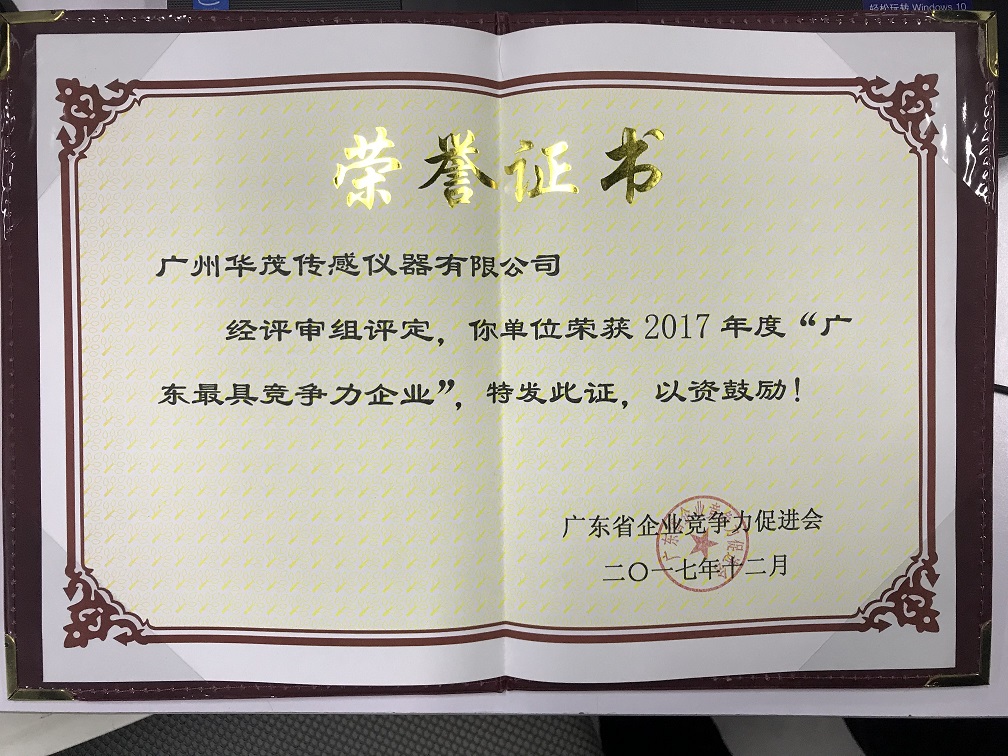 轻松玩转 Windows 10
荣誉证书
广州华茂传感仪器有限公司
经评审组评定，你单位荣获 2017 年度“广
东最具竞争力企业”，特发此证，以资鼓励！
广东省企业竞争力促进会
二〇一七年十二月
广东省企业竞争力促进会